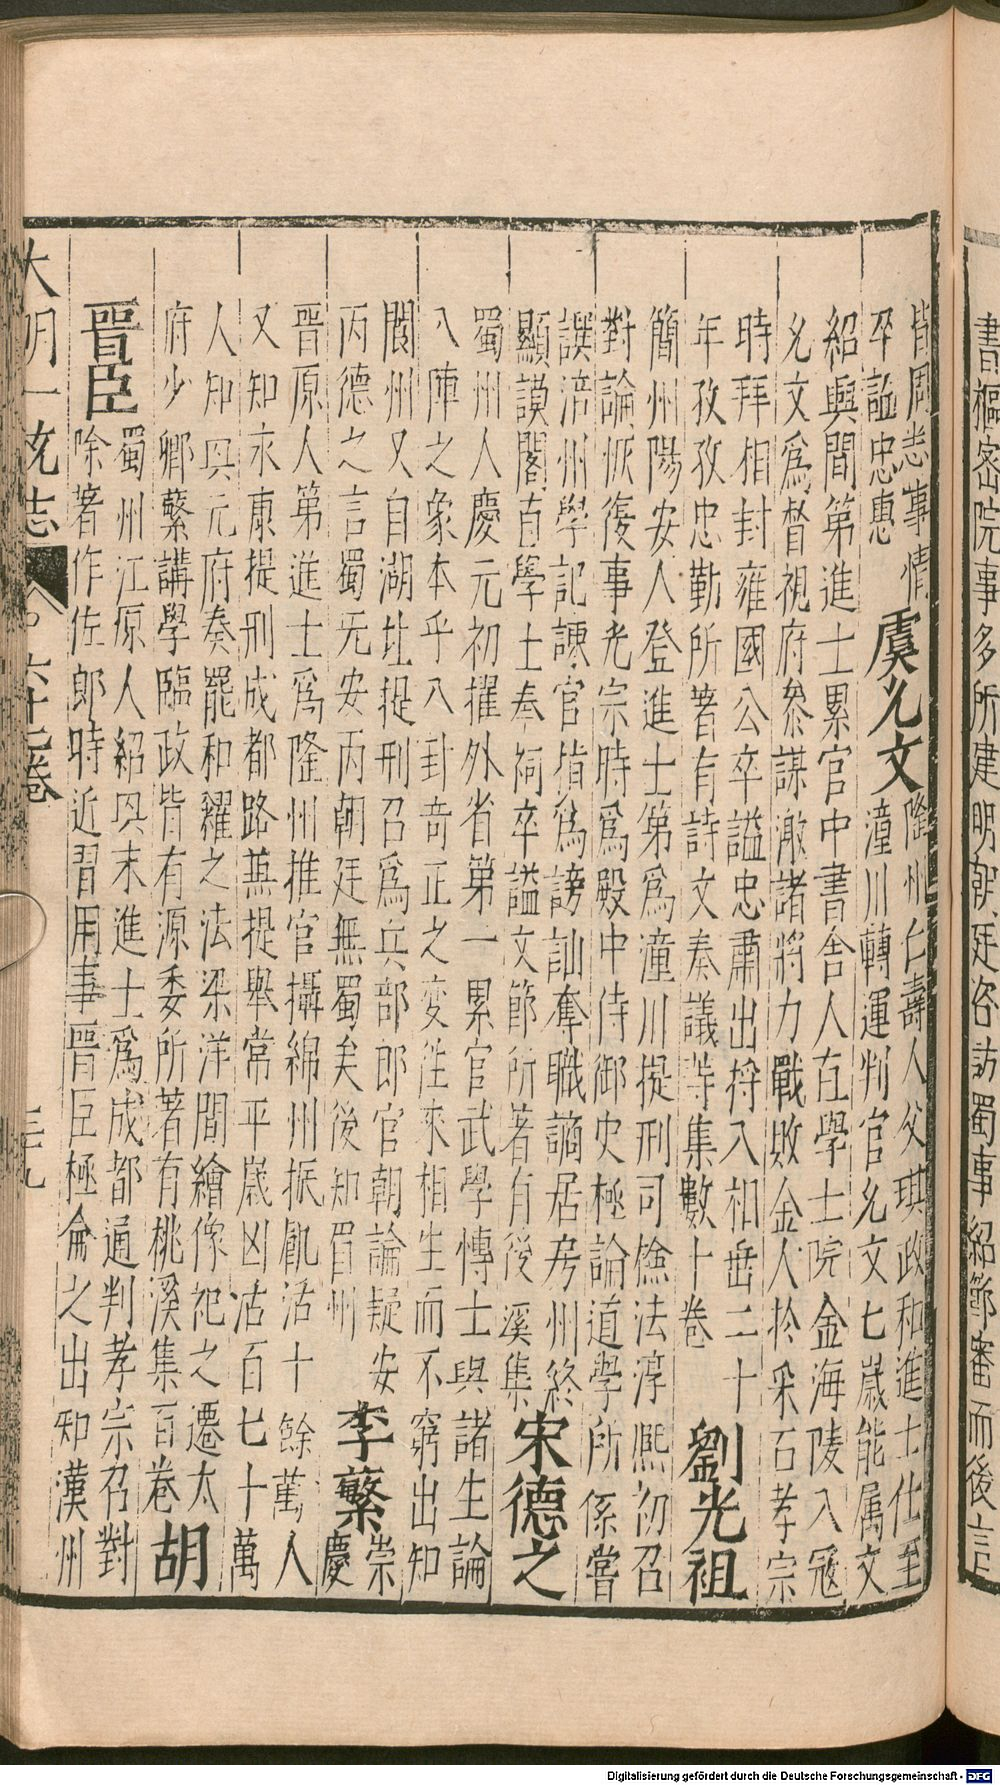 書樞密院事多所建明朝廷咨訪蜀事紹節審而後言
皆周悉事情
卒謚忠惠
虞允文
隆州仁壽人父琪政和進士仕至
潼川轉運判官允文七歲能属文
紹興間第進士累官中書舍人直學士院金海陵入寇
允文爲督視府叅謀激諸將力戰敗金人於采石孝宗
時拜相封雍國公卒謚忠肅出將入相垂二十
年孜孜忠勤所著有詩文奏議等集數十卷
劉光祖
簡州陽安人登進士第爲潼川提刑司檢法淳熙初召
對論恢復事光宗時爲殿中侍御史極論道學所係嘗
譔涪州學記諫官指爲謗訕奪職謫居房州終
顯謨閣直學士奉祠卒謚文節所著有後溪集
宋德之
蜀州人慶元初擢外省第一累官武學博士與諸生論
八陣之象本乎八卦奇正之变往來相生而不窮出知
閬州又自湖北提刑召爲兵部郎官朝論疑安
丙德之言蜀旡安丙朝廷無蜀矣後知眉州
李蘩
崇
慶
晉原人第進士爲隆州推官攝綿州振飢活十餘萬人
又知永康提刑成都路兼提舉常平歲凶活百七十萬
人知興元府奏罷和糴之法梁洋間繪像祀之遷太
府少卿蘩講學臨政皆有源委所著有桃溪集百卷
胡
晉臣
蜀州江原人紹興末進士爲成都通判孝宗召對
除著作佐郎時近習用事晉臣極倫之出知漢州
大明一统志
六十七卷
三十九
Digitalisierung gefördert durch die Deutsche Forschungsgemeinschaft - DFG